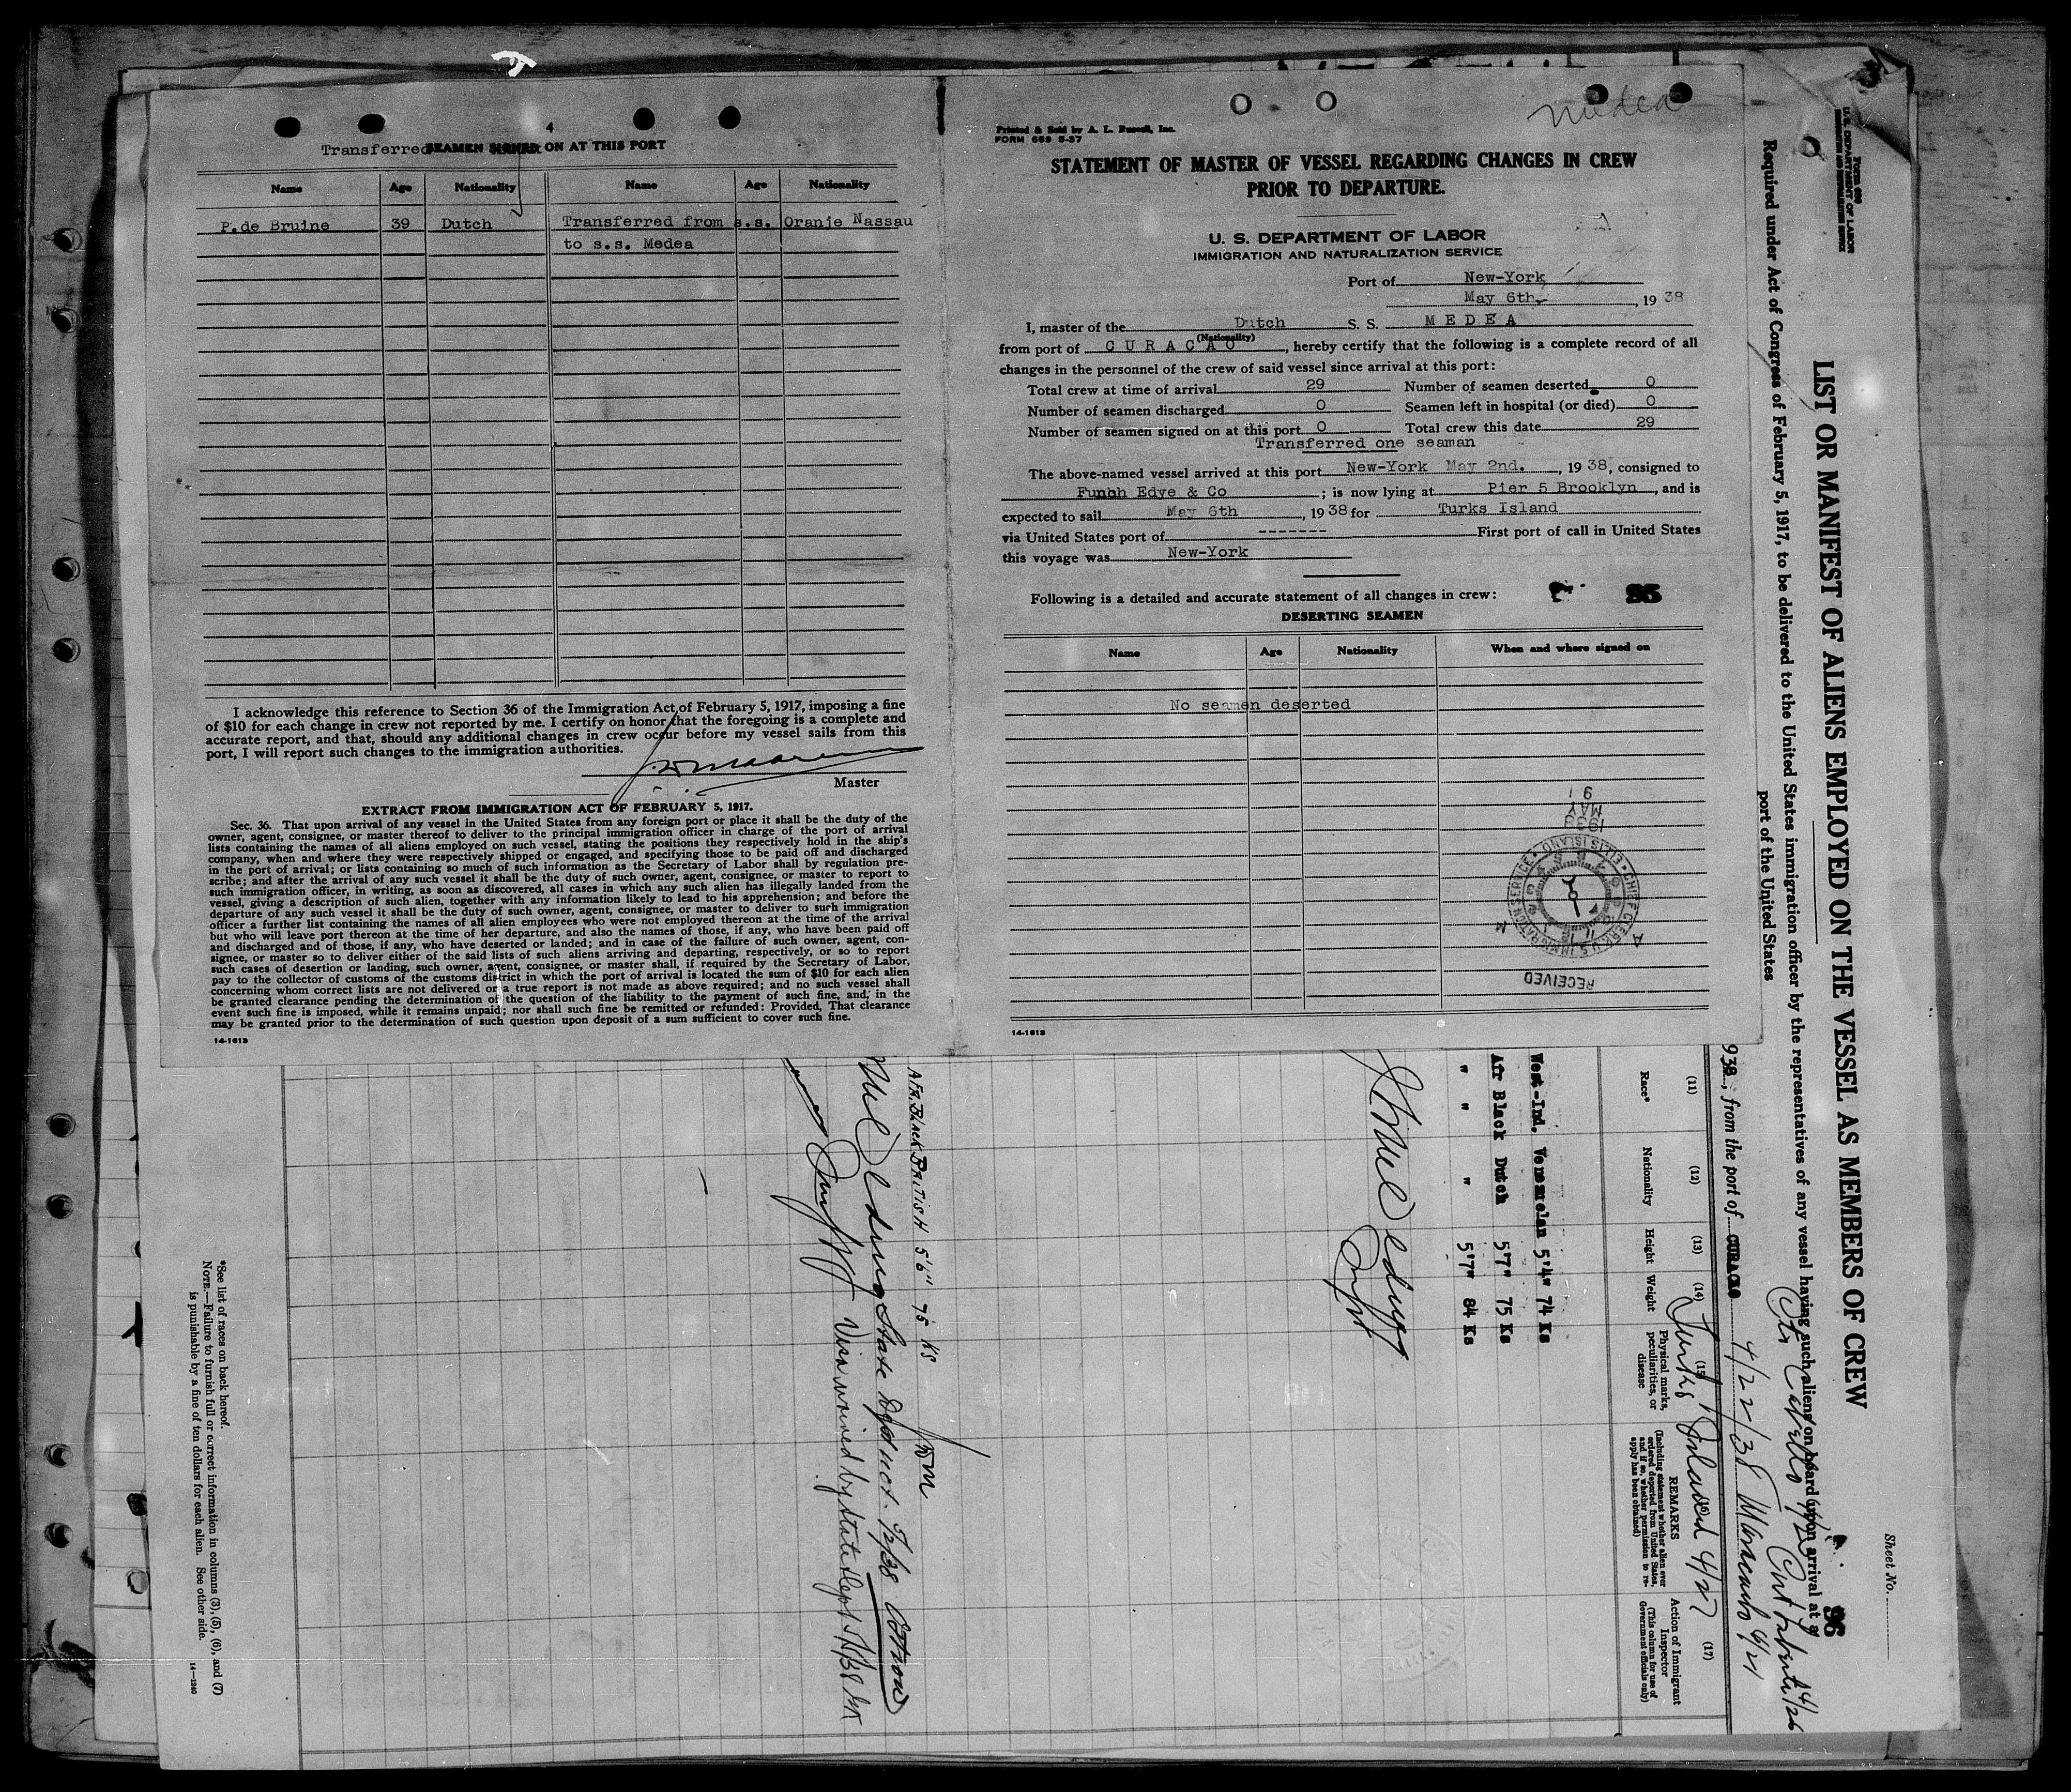 4
Transferred SEAMEN SIGNED ON AT THIS PORT
Name Age Nationality Name Age Nationality
P.de Bruine 39 Dutch Transferred from s.s. Oranje Nassau
to s.s. Medea
I acknowledge this reference to Section 36 of the Immigration Act of February 5, 1917, imposing a fine
of $10 for each change in crew not reported by me. I certify on honor that the foregoing is a complete and
accurate report, and that, should any additional changes in crew occur before my vessel sails from this
port, I will report such changes to the immigration authorities.
Master
EXTRACT FROM IMMIGRATION ACT OF FEBRUARY 5, 1917.
Sec. 36. That upon arrival of any vessel in the United States from any foreign port or place it shall be the duty of the
owner, agent, consignee, or master thereof to deliver to the principal immigration officer in charge of the port of arrival
lists containing the names of all aliens employed on such vessel, stating the positions they respectively hold in the ship's
company, when and where they were respectively shipped or engaged, and specifying those to be paid off and discharged
in the port of arrival; or lists containing so much of such information as the Secretary of Labor shall by regulation pre-
scribe; and after the arrival of any such vessel it shall be the duty of such owner, agent, consignee, or master to report to
such immigration officer, in writing, as soon as discovered, all cases in which any such alien has illegally landed from the
vessel, giving a description of such alien, together with any information likely to lead to his apprehension; and before the
departure of any such vessel it shall be the duty of such owner, agent, consignee, or master to deliver to such immigration
officer a further list containing the names of all alien employees who were not employed thereon at the time of the arrival
but who will leave port thereon at the time of her departure, and also the names of those, if any, who have been paid off
and discharged and of those, if any, who have deserted or landed; and in case of the failure of such owner, agent, con-
signee, or master so to deliver either of the said lists of such aliens arriving and departing, respectively, or so to report
such cases of desertion or landing, such owner, agent, consignee, or master shall, if required by the Secretary of Labor,
pay to the collector of customs of the customs district in which the port of arrival is located the sum of $10 for each alien
concerning whom correct lists are not delivered or a true report is not made as above required; and no such vessel shall
be granted clearance pending the determination of the question of the liability to the payment of such fine, and, in the
event such fine is imposed, while it remains unpaid; nor shall such fine be remitted or refunded: Provided, That clearance
may be granted prior to the determination of such question upon deposit of a sum sufficient to cover such fine.
14-1613
Medea
Printed & Sold by A. L. Russell, Inc.
FORM 689 5-37
STATEMENT OF MASTER OF VESSEL REGARDING CHANGES IN CREW
PRIOR TO DEPARTURE.
U. S. DEPARTMENT OF LABOR
IMMIGRATION AND NATURALIZATION SERVICE
Port of New-York
May 6th, 1938
I, master of the Dutch S. S. MEDEA
(Nationality)
from port of CURACAO, hereby certify that the following is a complete record of all
changes in the personnel of the crew of said vessel since arrival at this port:
Total crew at time of arrival 29 Number of seamen deserted 0
Number of seamen discharged 0 Seamen left in hospital (or died) 0
Number of seamen signed on at this port 0 Total crew this date 29
Transferred one seaman
The above-named vessel arrived at this port New-York May 2nd., 1938, consigned to
Funhh Edye & Co ; is now lying at Pier 5 Brooklyn, and is
expected to sail May 6th, 1938 for Turks Island
via United States port of ------- First port of call in United States
this voyage was New-York
Following is a detailed and accurate statement of all changes in crew: 95
DESERTING SEAMEN
Name Age Nationality When and where signed on
No seamen deserted
RECEIVED
CHIEF CLERK U.S. IMMIGRATION SERVICE ELLIS ISLAND
1938
MAY
14-1613
Form 689
U. S. DEPARTMENT OF LABOR
Sheet No.
96
LIST OR MANIFEST OF ALIENS EMPLOYED ON THE VESSEL AS MEMBERS OF CREW
Required under Act of Congress of February 5, 1917, to be delivered to the United States immigration officer by the representatives of any vessel having such aliens on board upon arrival at a
port of the United States
938, from the port of CURACAO 4/22/38 Maracaibo 4/21
Turks Island 4/27
(11) (12) (13) (14) (15) (17)
Race* Nationality Height Weight Physical marks, peculiarities, or disease
REMARKS
(Including statement whether alien ever ordered deported from United States, and if so, whether permission to re-apply has been obtained)
Action of Immigrant Inspector
(This column for use of Government officials only)
West-Ind. Venezuelan 5'4" 74 Ks
Afr Black Dutch 5'7" 75 Ks
" " " 5'7" 84 Ks
AFR. Black BRITISH 5'6" 75 KS
Visa waived by State Dept 5/2/38
*See list of races on back hereof.
NOTE.—Failure to furnish full or correct information in columns (3), (5), (6), and (7)
is punishable by a fine of ten dollars for each alien. See other side.
14-1240